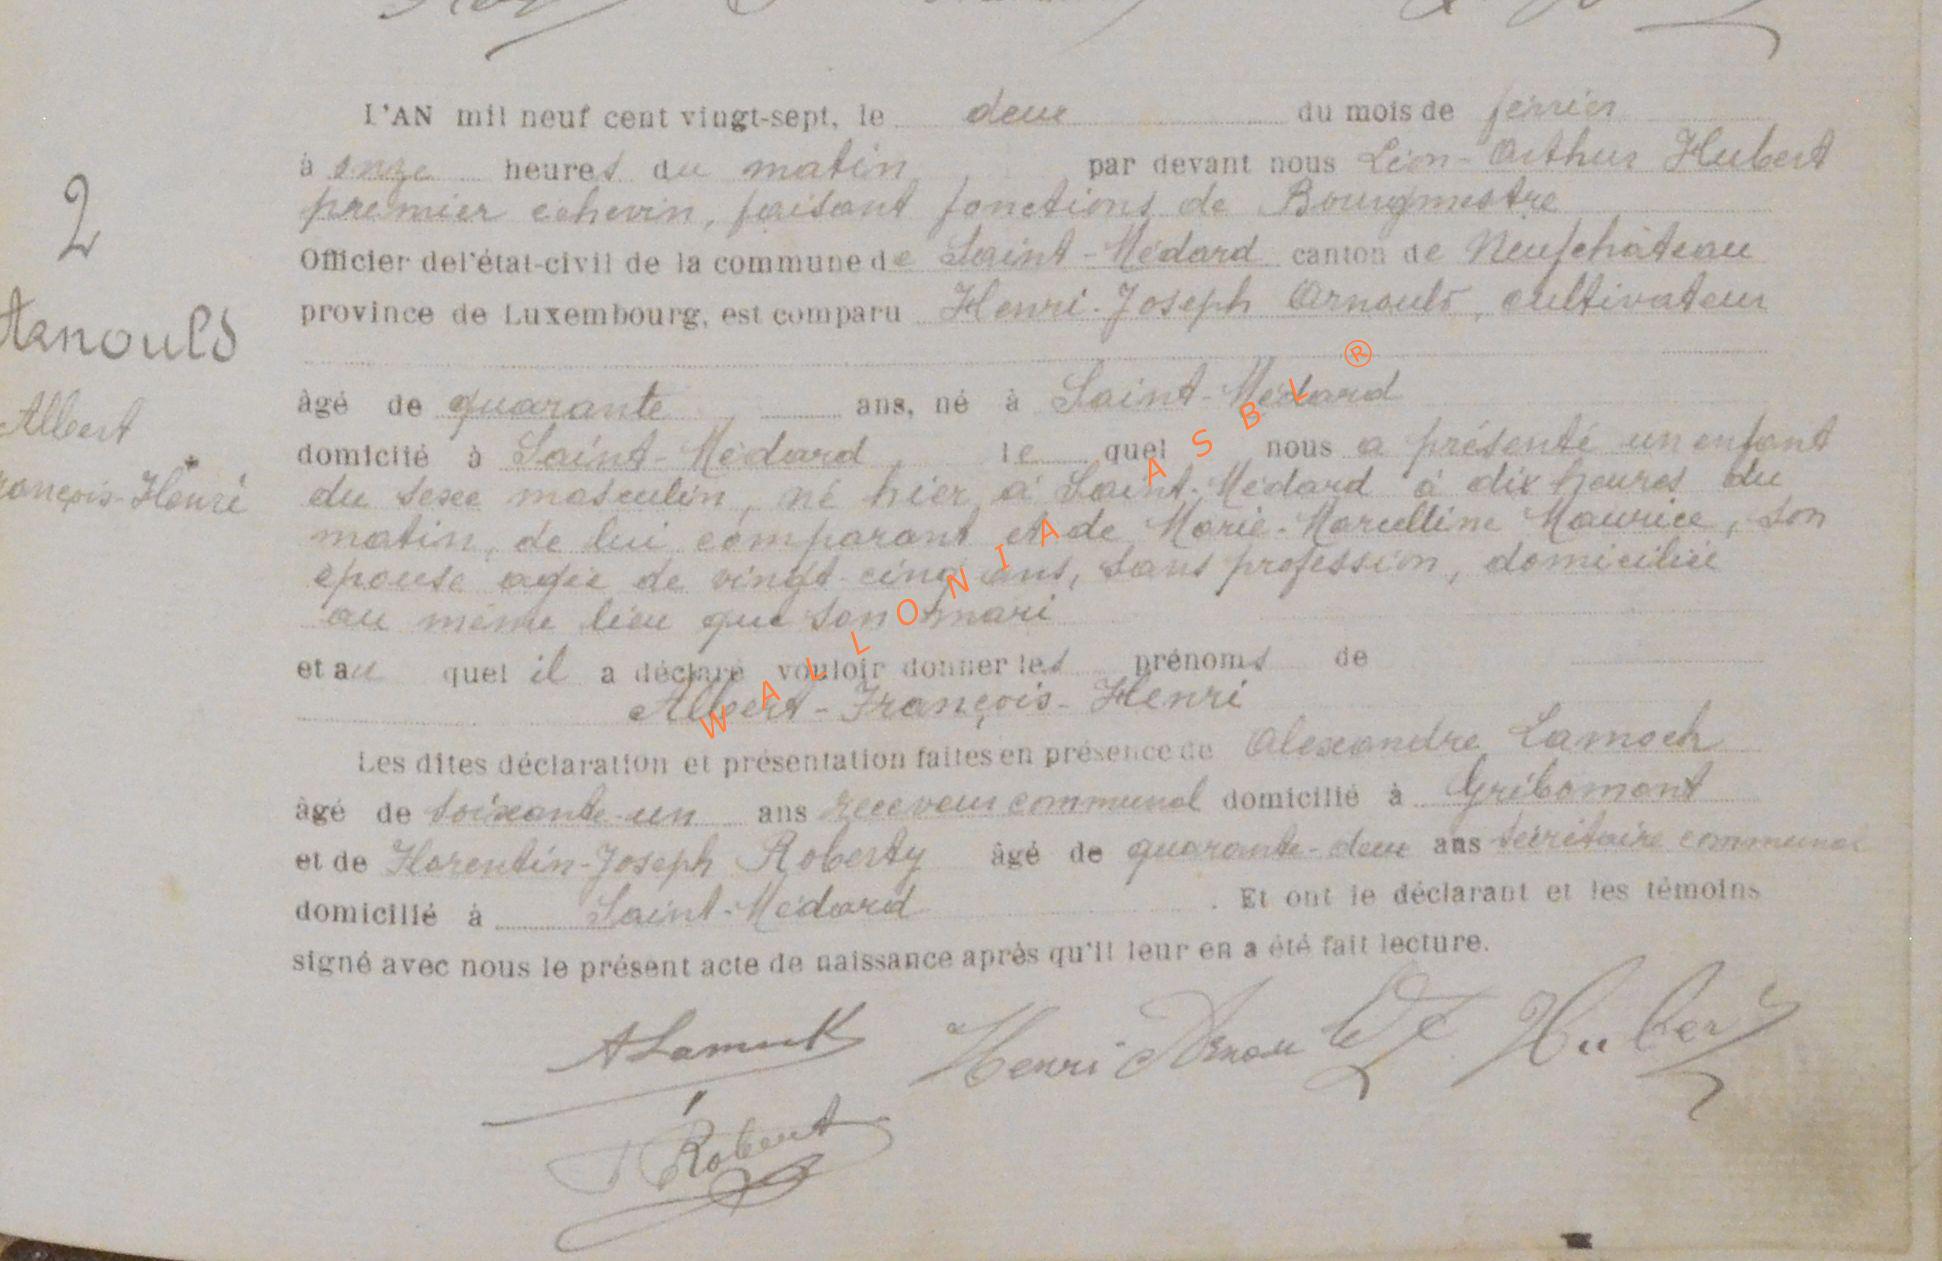 2
Arnould
Albert
François-Henri
L'AN mil neuf cent vingt-sept, le deux du mois de février
à onze heures du matin par devant nous Léon-Arthur Hubert
premier echevin, faisant fonctions de Bourgmestre
Officier de l'état-civil de la commune de Saint-Médard canton de Neufchâteau
province de Luxembourg, est comparu Henri-Joseph Arnould, cultivateur
âgé de quarante ans, né à Saint-Médard
domicilié à Saint-Médard le quel nous a présenté un enfant
du sexe masculin, né hier à Saint-Médard à dix heures du
matin, de lui comparant et de Marie-Marcelline Maurice, son
épouse agée de vingt-cinq ans, sans profession, domiciliée
au même lieu que son mari
et au quel il a déclaré vouloir donner les prénoms de
Albert-François-Henri
Les dites déclaration et présentation faites en présence de Alexandre
âgé de soixante-un ans receveur communal domicilié à Gribomont
et de Florentin-Joseph Roberty âgé de quarante-deux ans secrétaire communal
domicilié à Saint-Médard. Et ont le déclarant et les témoins
signé avec nous le présent acte de naissance après qu'il leur en a été fait lecture.
Henri Arnould Hubert
WALLONIA ASBL ®